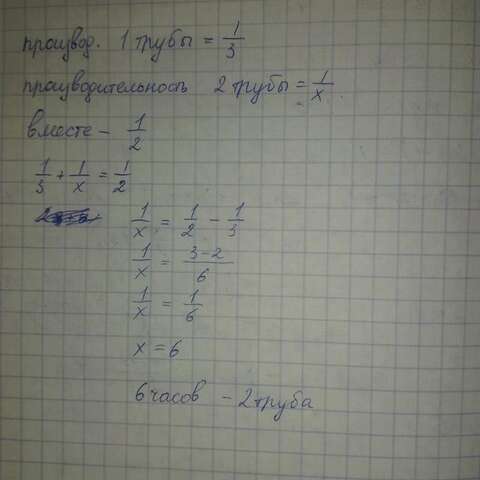 производ. 1 трубы = 1/3
производительность 2 трубы = 1/x
вместе – 1/2
1/3 + 1/x = 1/2
1/x = 1/2 - 1/3
1/x = 3-2/6
1/x = 1/6
x = 6
6 часов – 2 труба